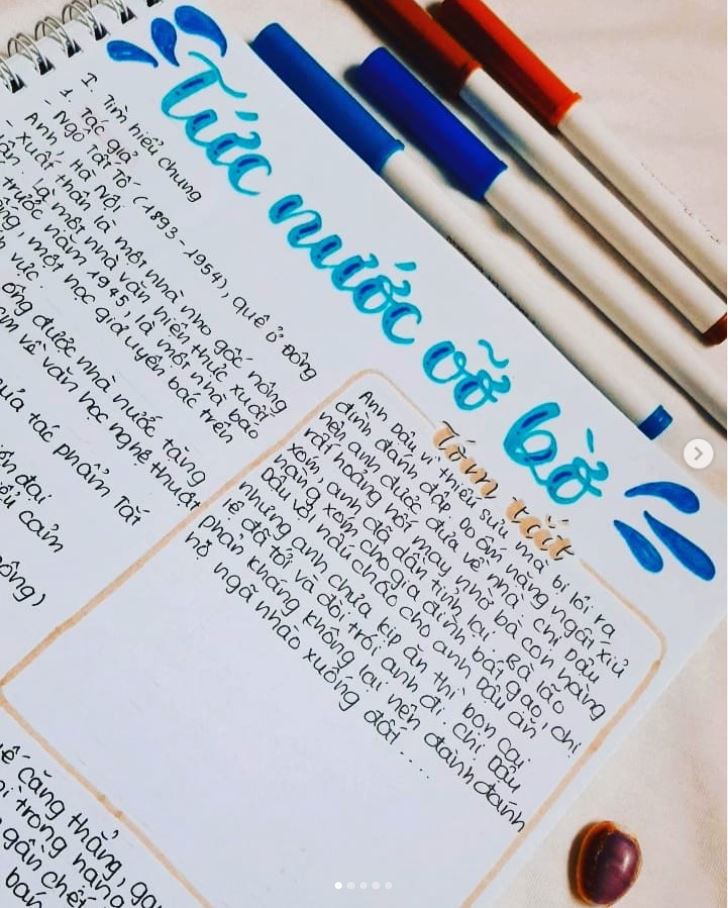 Tức nước vỡ bờ
I. Tìm hiểu chung
1. Tác giả
- Ngô Tất Tố (1893 - 1954), quê ở Đông
Anh, Hà Nội
- Xuất thân là một nhà nho gốc nông
Là một nhà văn hiện thực xuất
trước năm 1945, là một nhà báo
một học giả uyên bác trên
vực.
ông được nhà nước tặng
về văn học nghệ thuật
tác phẩm Tắt
đại
cảm
Tóm tắt
Anh Dậu vì thiếu sưu mà bị lôi ra
đình đánh đập. Do ốm nặng ngất xỉu
nên anh được đưa về nhà. Chị Dậu
rất hoảng hốt may nhờ bà con hàng
xóm, anh đã dần tỉnh lại. Bà lão
hàng xóm cho gia đình bát gạo, chị
Dậu vội nấu cháo cho anh Dậu ăn
nhưng anh chưa kịp ăn thì bọn cai
lệ đã tới và đòi trói anh đi. Chị Dậu
phản kháng không lại nên đành đánh
nó ngã nhào xuống đất ....
căng thẳng,
trong
gần chết